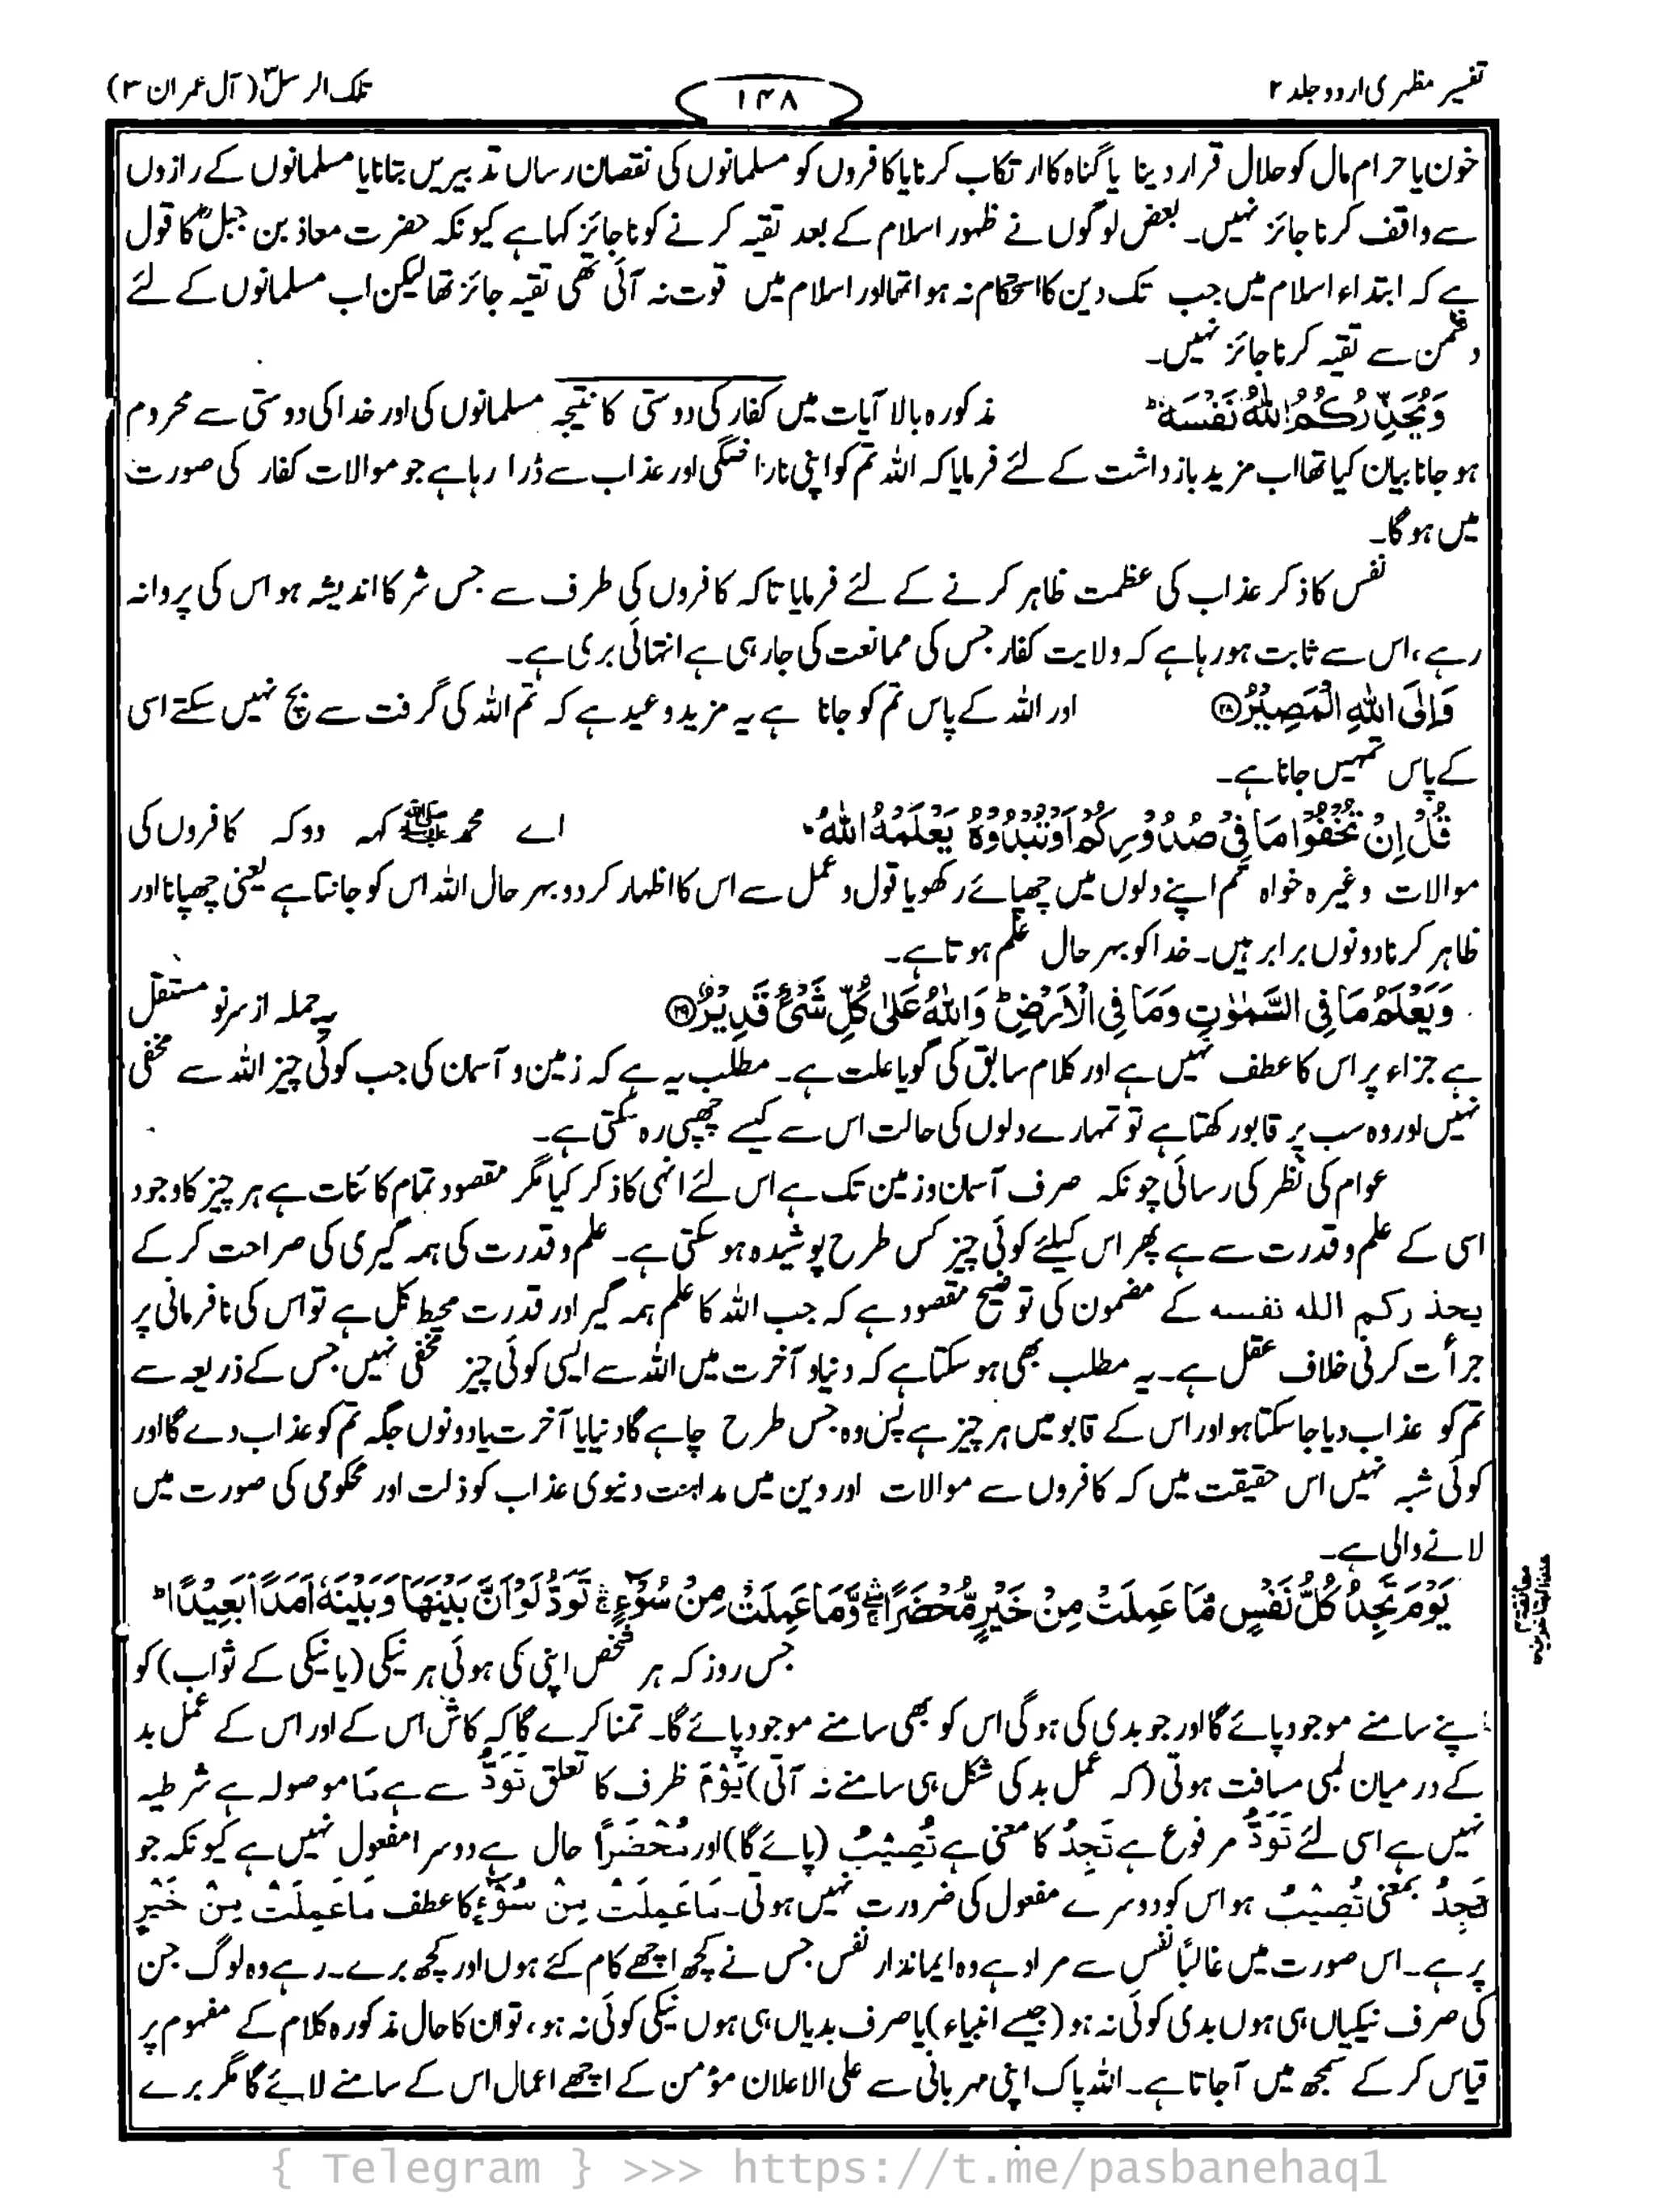 تفسیر مظہری اردو جلد ۲
۱۴۸
تلک الرسل ۳ (آل عمران ۳)
خون یا حرام مال کو حلال قرار دینا یا گناہ کا ارتکاب کرنا یا کافروں کو مسلمانوں کی نقصان رساں تدبیریں بتانا یا مسلمانوں کے رازوں
سے واقف کرنا جائز نہیں۔ بعض لوگوں نے ظہور اسلام کے بعد تقیہ کرنے کو ناجائز کہا ہے کیونکہ حضرت معاذ بن جبلؓ کا قول
ہے کہ ابتداء اسلام میں جب تک دین کا استحکام نہ ہوا تھا اور اسلام میں قوت نہ آئی تھی تقیہ جائز تھا لیکن اب مسلمانوں کے لئے
دشمن سے تقیہ کرنا جائز نہیں۔
وَيُحَذِّرُكُمُ اللّٰهُ نَفْسَهٗ ؕ مذکورہ بالا آیات میں کفار کی دوستی کا نتیجہ مسلمانوں کی اور خدا کی دوستی سے محروم
ہو جانا بیان کیا تھا اب مزید بازداشت کے لئے فرمایا کہ اللہ تم کو اپنی ناراضگی اور عذاب سے ڈرا رہا ہے جو موالات کفار کی صورت
میں ہوگا۔
نفس کا ذکر عذاب کی عظمت ظاہر کرنے کے لئے فرمایا تاکہ کافروں کی طرف سے جس شر کا اندیشہ ہو اس کی پروا نہ
رہے، اس سے ثابت ہو رہا ہے کہ ولایت کفار جس کی ممانعت کی جا رہی ہے انتہائی بری ہے۔
وَاِلَى اللّٰهِ الْمَصِيْرُ ۝۲۸ اور اللہ کے پاس تم کو جانا ہے یہ مزید وعید ہے کہ تم اللہ کی گرفت سے بچ نہیں سکتے اسی
کے پاس تمہیں جانا ہے۔
قُلْ اِنْ تُخْفُوْا مَا فِیْ صُدُوْرِكُمْ اَوْ تُبْدُوْهُ يَعْلَمْهُ اللّٰهُ ؕ اے محمد ﷺ کہہ دو کہ کافروں کی
موالات وغیرہ خواہ تم اپنے دلوں میں چھپائے رکھو یا قول و عمل سے اس کا اظہار کردو بہر حال اللہ اس کو جانتا ہے یعنی چھپانا اور
ظاہر کرنا دونوں برابر ہیں۔ خدا کو بہر حال علم ہوتا ہے۔
وَيَعْلَمُ مَا فِی السَّمٰوٰتِ وَمَا فِی الْاَرْضِ ؕ وَاللّٰهُ عَلٰى كُلِّ شَیْءٍ قَدِيْرٌ ۝۲۹ یہ جملہ از سر نو مستقل
ہے جزاء پر اس کا عطف نہیں ہے اور کلام سابق کی گویا علت ہے۔ مطلب یہ ہے کہ زمین و آسمان کی جب کوئی چیز اللہ سے مخفی
نہیں اور وہ سب پر قابو رکھتا ہے تو تمہارے دلوں کی حالت اس سے کیسے چھپی رہ سکتی ہے۔
عوام کی نظر کی رسائی چونکہ صرف آسمان و زمین تک ہے اس لئے انہی کا ذکر کیا مگر مقصود تمام کائنات ہے ہر چیز کا وجود
اسی کے علم و قدرت سے ہے پھر اس کیلئے کوئی چیز کس طرح پوشیدہ ہو سکتی ہے۔ علم و قدرت کی ہمہ گیری کی صراحت کر کے
یحذرکم اللہ نفسہ کے مضمون کی توضیح مقصود ہے کہ جب اللہ کا علم ہمہ گیر اور قدرت محیط کل ہے تو اس کی نافرمانی پر
جرأت کرنی خلاف عقل ہے۔ یہ مطلب بھی ہو سکتا ہے کہ دنیا و آخرت میں اللہ سے ایسی کوئی چیز مخفی نہیں جس کے ذریعہ سے
تم کو عذاب دیا جا سکتا ہو اور اس کے قابو میں ہر چیز ہے پس وہ جس طرح چاہے گا دنیا یا آخرت یا دونوں جگہ تم کو عذاب دے گا اور
کوئی شبہ نہیں اس حقیقت میں کہ کافروں سے موالات اور دین میں مداہنت دنیوی عذاب کو ذلت اور محکومی کی صورت میں
لانے والی ہے۔
يَوْمَ تَجِدُ كُلُّ نَفْسٍ مَّا عَمِلَتْ مِنْ خَيْرٍ مُّحْضَرًا ۛۖ وَّمَا عَمِلَتْ مِنْ سُوْٓءٍ ۛۚ تَوَدُّ لَوْ اَنَّ بَيْنَهَا وَبَيْنَهٗٓ اَمَدًۢا بَعِيْدًا ؕ
معانقة ۲ عند المتاخرین
جس روز کہ ہر شخص اپنی کی ہوئی ہر نیکی (یا نیکی کے ثواب) کو
اپنے سامنے موجود پائے گا اور جو بدی کی ہوگی اس کو بھی سامنے موجود پائے گا۔ تمنا کرے گا کہ کاش اس کے اور اس کے عمل بد
کے درمیان لمبی مسافت ہوتی (کہ عمل بد کی شکل ہی سامنے نہ آتی) یَوْمَ ظرف کا تعلق تَوَدُّ سے ہے مَا موصولہ ہے شرطیہ
نہیں ہے اسی لئے تَوَدُّ مرفوع ہے تَجِدُ کا معنی ہے تُصِیْبُ (پائے گا) اور مُحْضَرًا حال ہے دوسرا مفعول نہیں ہے کیونکہ جو
تَجِدُ بمعنی تُصِیْبُ ہو اس کو دوسرے مفعول کی ضرورت نہیں ہوتی۔ مَا عَمِلَتْ مِنْ سُوْٓءٍ کا عطف مَا عَمِلَتْ مِنْ خَیْرٍ
پر ہے۔ اس صورت میں غالباً نفس سے مراد ہے وہ ایماندار نفس جس نے کچھ اچھے کام کئے ہوں اور کچھ برے۔ رہے وہ لوگ جن
کی صرف نیکیاں ہی ہوں بدی کوئی نہ ہو (جیسے انبیاء) یا صرف بدیاں ہی ہوں نیکی کوئی نہ ہو، تو ان کا حال مذکورہ کلام کے مفہوم پر
قیاس کر کے سمجھ میں آجاتا ہے۔ اللہ پاک اپنی مہربانی سے علی الاعلان مؤمن کے اچھے اعمال اس کے سامنے لائے گا مگر برے
{ Telegram } >>> https://t.me/pasbanehaq1